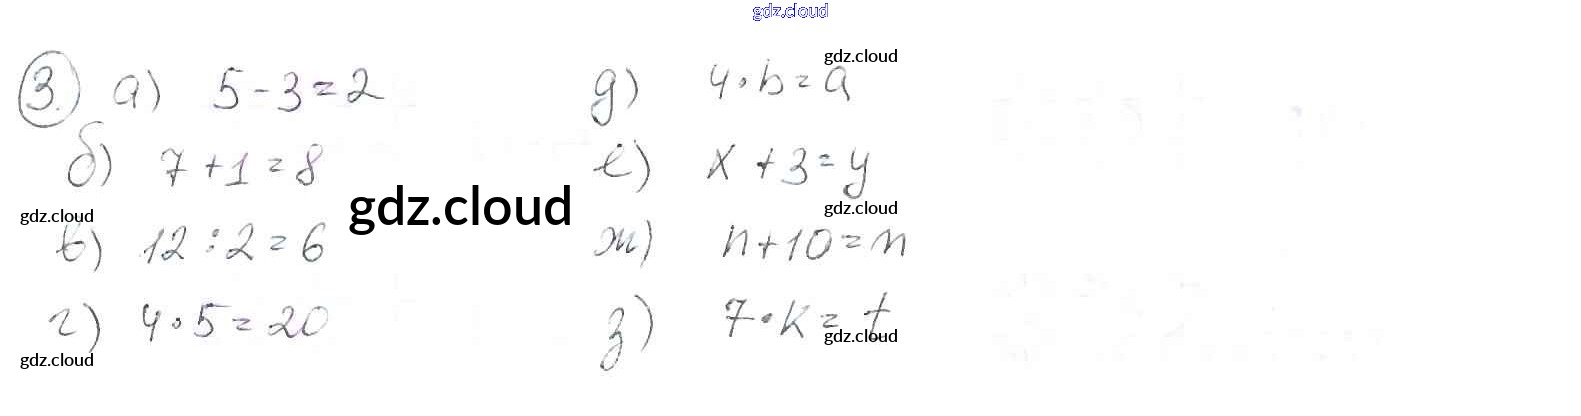 gdz.cloud
3. а) 5 - 3 = 2
б) 7 + 1 = 8
в) 12 : 2 = 6
г) 4 · 5 = 20
д) 4 · b = a
е) x + 3 = y
ж) n + 10 = m
з) 7 · k = t
gdz.cloud
gdz.cloud
gdz.cloud
gdz.cloud
gdz.cloud
gdz.cloud